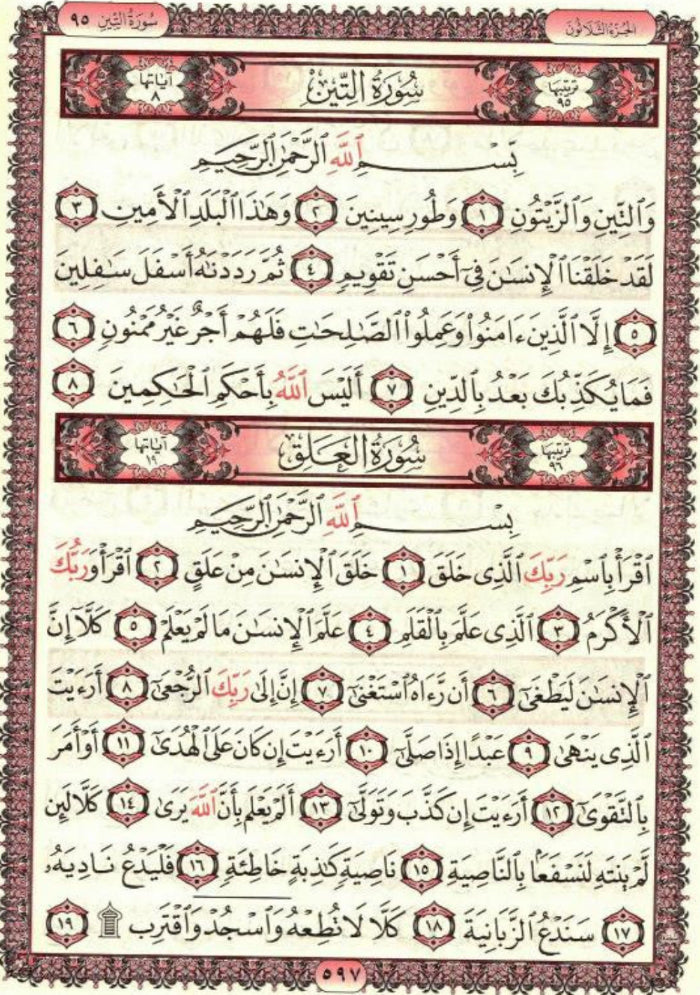 الجزء الثلاثون
سورة التين ٩٥
ترتيبها ٩٥
سُورَةُ التِّينِ
آياتها ٨
بِسْمِ ٱللَّهِ ٱلرَّحْمَٰنِ ٱلرَّحِيمِ
وَٱلتِّينِ وَٱلزَّيْتُونِ ١ وَطُورِ سِينِينَ ٢ وَهَٰذَا ٱلْبَلَدِ ٱلْأَمِينِ ٣
لَقَدْ خَلَقْنَا ٱلْإِنسَٰنَ فِىٓ أَحْسَنِ تَقْوِيمٍ ٤ ثُمَّ رَدَدْنَٰهُ أَسْفَلَ سَٰفِلِينَ
٥ إِلَّا ٱلَّذِينَ ءَامَنُوا۟ وَعَمِلُوا۟ ٱلصَّٰلِحَٰتِ فَلَهُمْ أَجْرٌ غَيْرُ مَمْنُونٍ ٦
فَمَا يُكَذِّبُكَ بَعْدُ بِٱلدِّينِ ٧ أَلَيْسَ ٱللَّهُ بِأَحْكَمِ ٱلْحَٰكِمِينَ ٨
ترتيبها ٩٦
سُورَةُ العَلَقِ
آياتها ١٩
بِسْمِ ٱللَّهِ ٱلرَّحْمَٰنِ ٱلرَّحِيمِ
ٱقْرَأْ بِٱسْمِ رَبِّكَ ٱلَّذِى خَلَقَ ١ خَلَقَ ٱلْإِنسَٰنَ مِنْ عَلَقٍ ٢ ٱقْرَأْ وَرَبُّكَ
ٱلْأَكْرَمُ ٣ ٱلَّذِى عَلَّمَ بِٱلْقَلَمِ ٤ عَلَّمَ ٱلْإِنسَٰنَ مَا لَمْ يَعْلَمْ ٥ كَلَّآ إِنَّ
ٱلْإِنسَٰنَ لَيَطْغَىٰٓ ٦ أَن رَّءَاهُ ٱسْتَغْنَىٰٓ ٧ إِنَّ إِلَىٰ رَبِّكَ ٱلرُّجْعَىٰٓ ٨ أَرَءَيْتَ
ٱلَّذِى يَنْهَىٰ ٩ عَبْدًا إِذَا صَلَّىٰٓ ١٠ أَرَءَيْتَ إِن كَانَ عَلَى ٱلْهُدَىٰٓ ١١ أَوْ أَمَرَ
بِٱلتَّقْوَىٰٓ ١٢ أَرَءَيْتَ إِن كَذَّبَ وَتَوَلَّىٰٓ ١٣ أَلَمْ يَعْلَم بِأَنَّ ٱللَّهَ يَرَىٰ ١٤ كَلَّا لَئِن
لَّمْ يَنتَهِ لَنَسْفَعًۢا بِٱلنَّاصِيَةِ ١٥ نَاصِيَةٍ كَٰذِبَةٍ خَاطِئَةٍ ١٦ فَلْيَدْعُ نَادِيَهُۥ
١٧ سَنَدْعُ ٱلزَّبَانِيَةَ ١٨ كَلَّا لَا تُطِعْهُ وَٱسْجُدْ وَٱقْتَرِب ۩ ١٩
٥٩٧